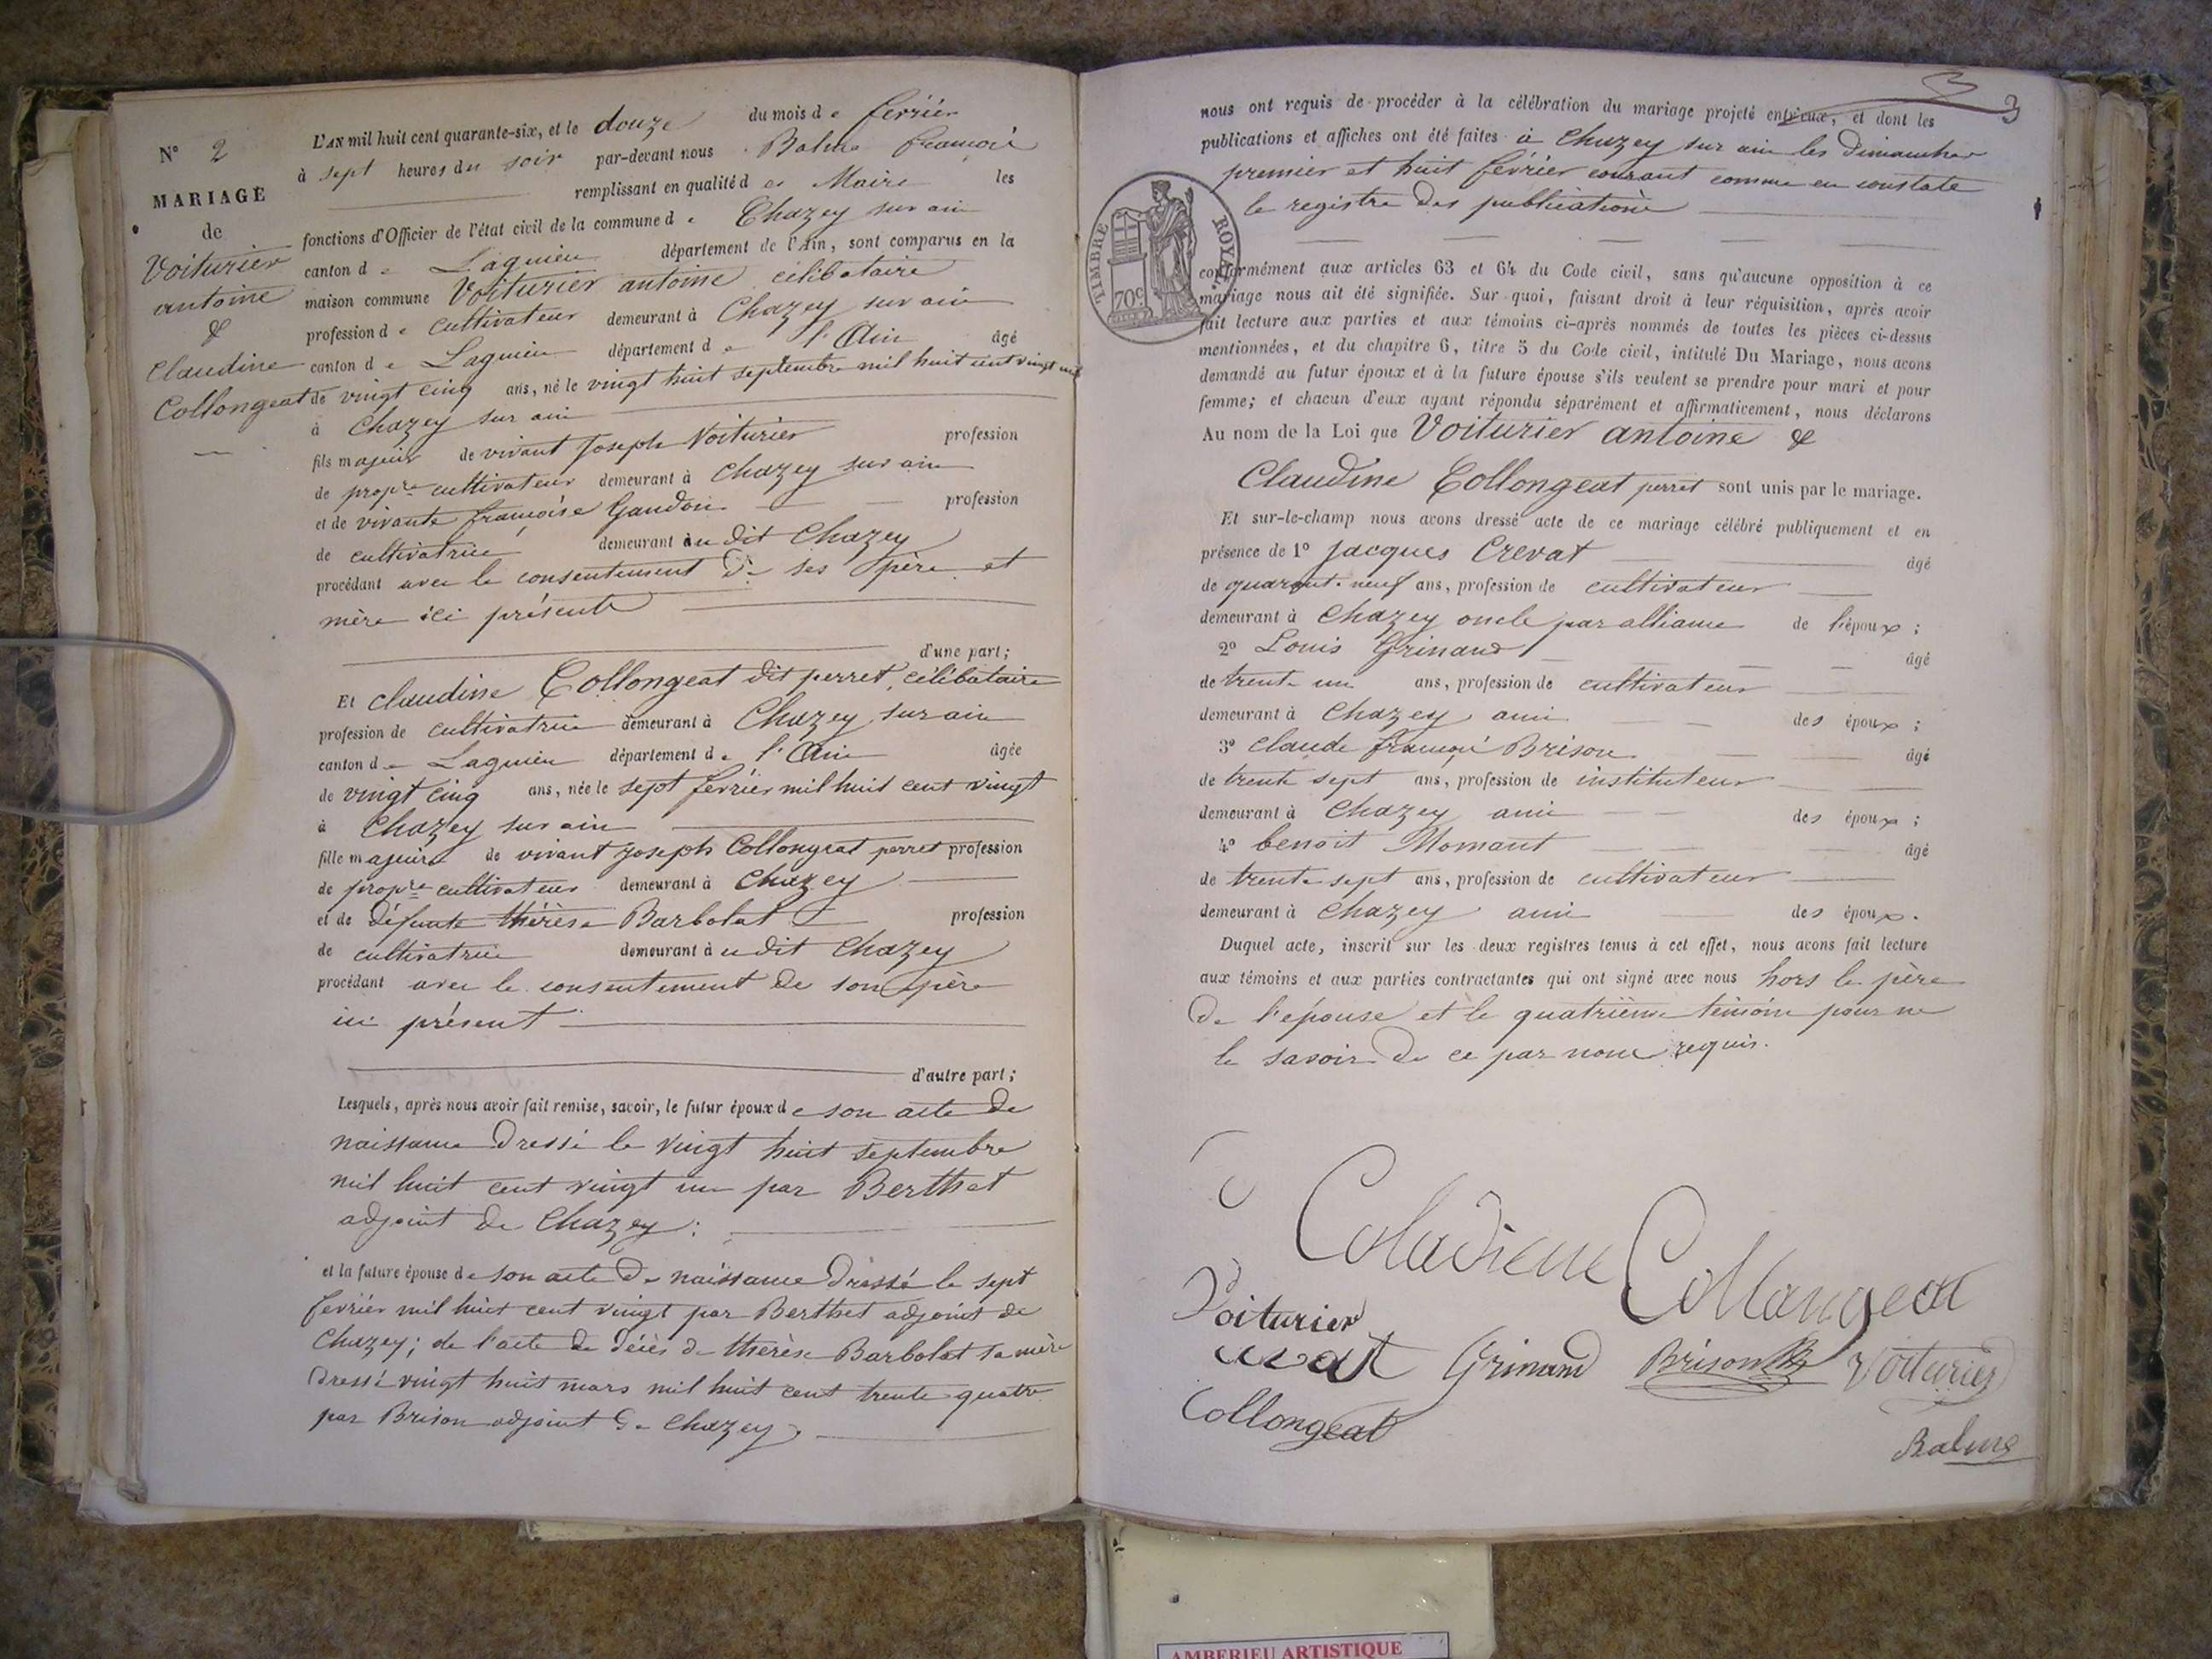 N° 2
MARIAGE
de
Voiturier
antoine
&
Claudine
Collongeat
L'AN mil huit cent quarante-six, et le douze du mois de février
à sept heures du soir par-devant nous Balme françois
remplissant en qualité de Maire les
fonctions d'Officier de l'état civil de la commune de Chazey sur ain
canton de Lagnieu département de l'Ain, sont comparus en la
maison commune Voiturier antoine célibataire
profession de cultivateur demeurant à Chazey sur ain
canton de Lagnieu département de l'Ain âgé
de vingt cinq ans, né le vingt huit septembre mil huit cent vingt un
à Chazey sur ain
fils majeur de vivant Joseph Voiturier profession
de propre cultivateur demeurant à Chazey sur ain
et de vivante françoise Gaudon profession
de cultivatrice demeurant au dit Chazey
procédant avec le consentement de ses père et
mère ici présents
d'une part;
Et claudine Collongeat dit perret, célibataire
profession de cultivatrice demeurant à Chazey sur ain
canton de Lagnieu département de l'Ain âgée
de vingt cinq ans, née le sept février mil huit cent vingt
à Chazey sur ain
fille majeure de vivant joseph Collongeat perret profession
de propre cultivateur demeurant à Chazey
et de défunte thérèse Barbolat profession
de cultivatrice demeurant au dit Chazey
procédant avec le consentement de son père
ici présent
d'autre part;
Lesquels, après nous avoir fait remise, savoir, le futur époux de son acte de
naissance dressé le vingt huit septembre
mil huit cent vingt un par Berthet
adjoint de Chazey;
et la future épouse de son acte de naissance dressé le sept
février mil huit cent vingt par Berthet adjoint de
Chazey; de l'acte de décès de thérèse Barbolat sa mère
dressé vingt huit mars mil huit cent trente quatre
par Brison adjoint de Chazey
3
nous ont requis de procéder à la célébration du mariage projeté entr'eux, et dont les
publications et affiches ont été faites à Chazey sur ain les dimanches
premier et huit février courant comme en constate
le registre des publications
TIMBRE ROYAL.
70c
conformément aux articles 63 et 64 du Code civil, sans qu'aucune opposition à ce
mariage nous ait été signifiée. Sur quoi, faisant droit à leur réquisition, après avoir
fait lecture aux parties et aux témoins ci-après nommés de toutes les pièces ci-dessus
mentionnées, et du chapitre 6, titre 5 du Code civil, intitulé Du Mariage, nous avons
demandé au futur époux et à la future épouse s'ils veulent se prendre pour mari et pour
femme; et chacun d'eux ayant répondu séparément et affirmativement, nous déclarons
Au nom de la Loi que Voiturier antoine &
Claudine Collongeat perret sont unis par le mariage.
Et sur-le-champ nous avons dressé acte de ce mariage célébré publiquement et en
présence de 1° Jacques Crevat âgé
de quarante-neuf ans, profession de cultivateur
demeurant à Chazey oncle par alliance de l'époux;
2° Louis Grinand âgé
de trente un ans, profession de cultivateur
demeurant à Chazey ami des époux;
3° claude françois Brison âgé
de trente sept ans, profession de instituteur
demeurant à Chazey ami des époux;
4° benoit Momant âgé
de trente sept ans, profession de cultivateur
demeurant à Chazey ami des époux.
Duquel acte, inscrit sur les deux registres tenus à cet effet, nous avons fait lecture
aux témoins et aux parties contractantes qui ont signé avec nous hors le père
de l'épouse et le quatrième témoin pour ne
le savoir de ce par nous requis.
Coladiene Collangeat
Voiturier
Grinand Brison Voiturier
Collongeat
Balme
AMBERIEU ARTISTIQUE